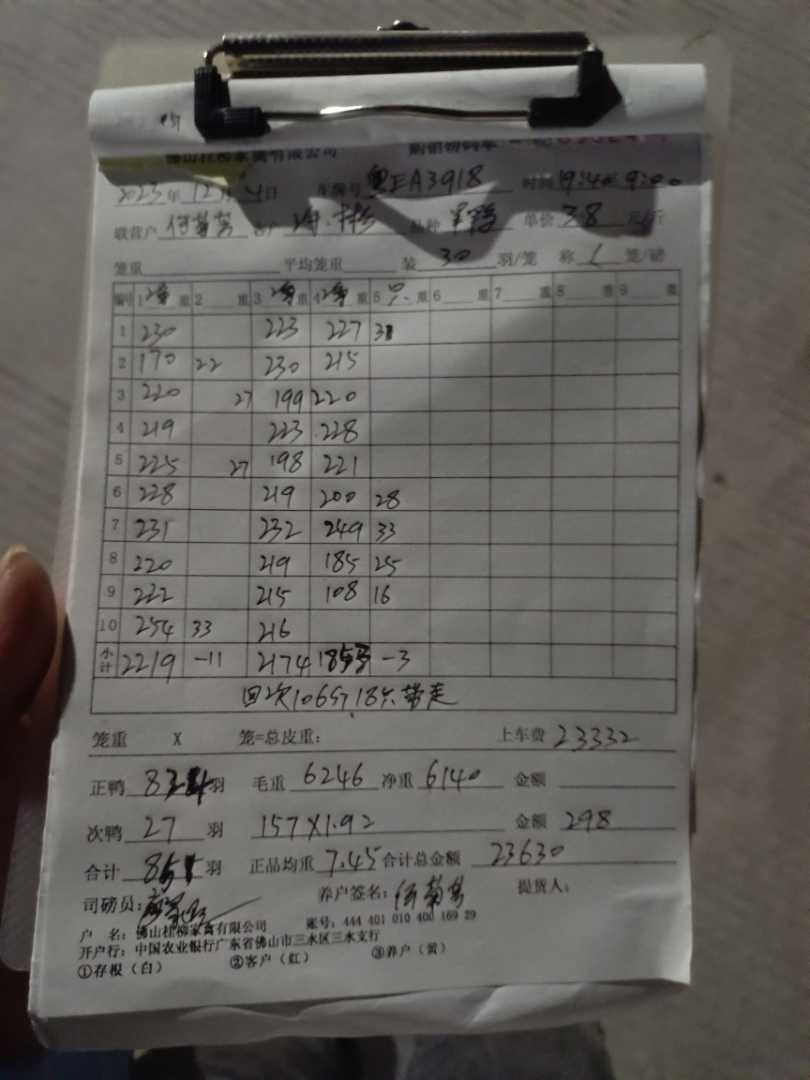 佛山桂柳家禽有限公司
2023年12月4日 车牌号 粤EA3918 时间
联营户 客户 品种 单价 3.8 元/斤
笼重 平均笼重 装 30 羽/笼 称 1 笼/磅
编号 1 重 2 重 3 重 4 重 5 只 重 6 重 7 重 8 重 9 重
1 230 223 227 31
2 170 22 230 215
3 220 27 199 220
4 219 223 228
5 225 27 198 221
6 228 219 200 28
7 231 232 249 33
8 220 219 185 25
9 222 215 108 16
10 254 33 216
小计 2219 -11 2174 1853 -3
回次106斤,18只带走
笼重 X 笼=总皮重: 上车费 23332
正鸭 824 羽 毛重 6246 净重 6140 金额
次鸭 27 羽 157X1.92 金额 298
合计 851 羽 正品均重 7.45 合计总金额 23630
司磅员: 养户签名: 提货人:
户 名: 佛山桂柳家禽有限公司 账号: 444 401 010 400 169 29
开户行: 中国农业银行广东省佛山市三水区三水支行
①存根(白) ②客户(红) ③养户(黄)